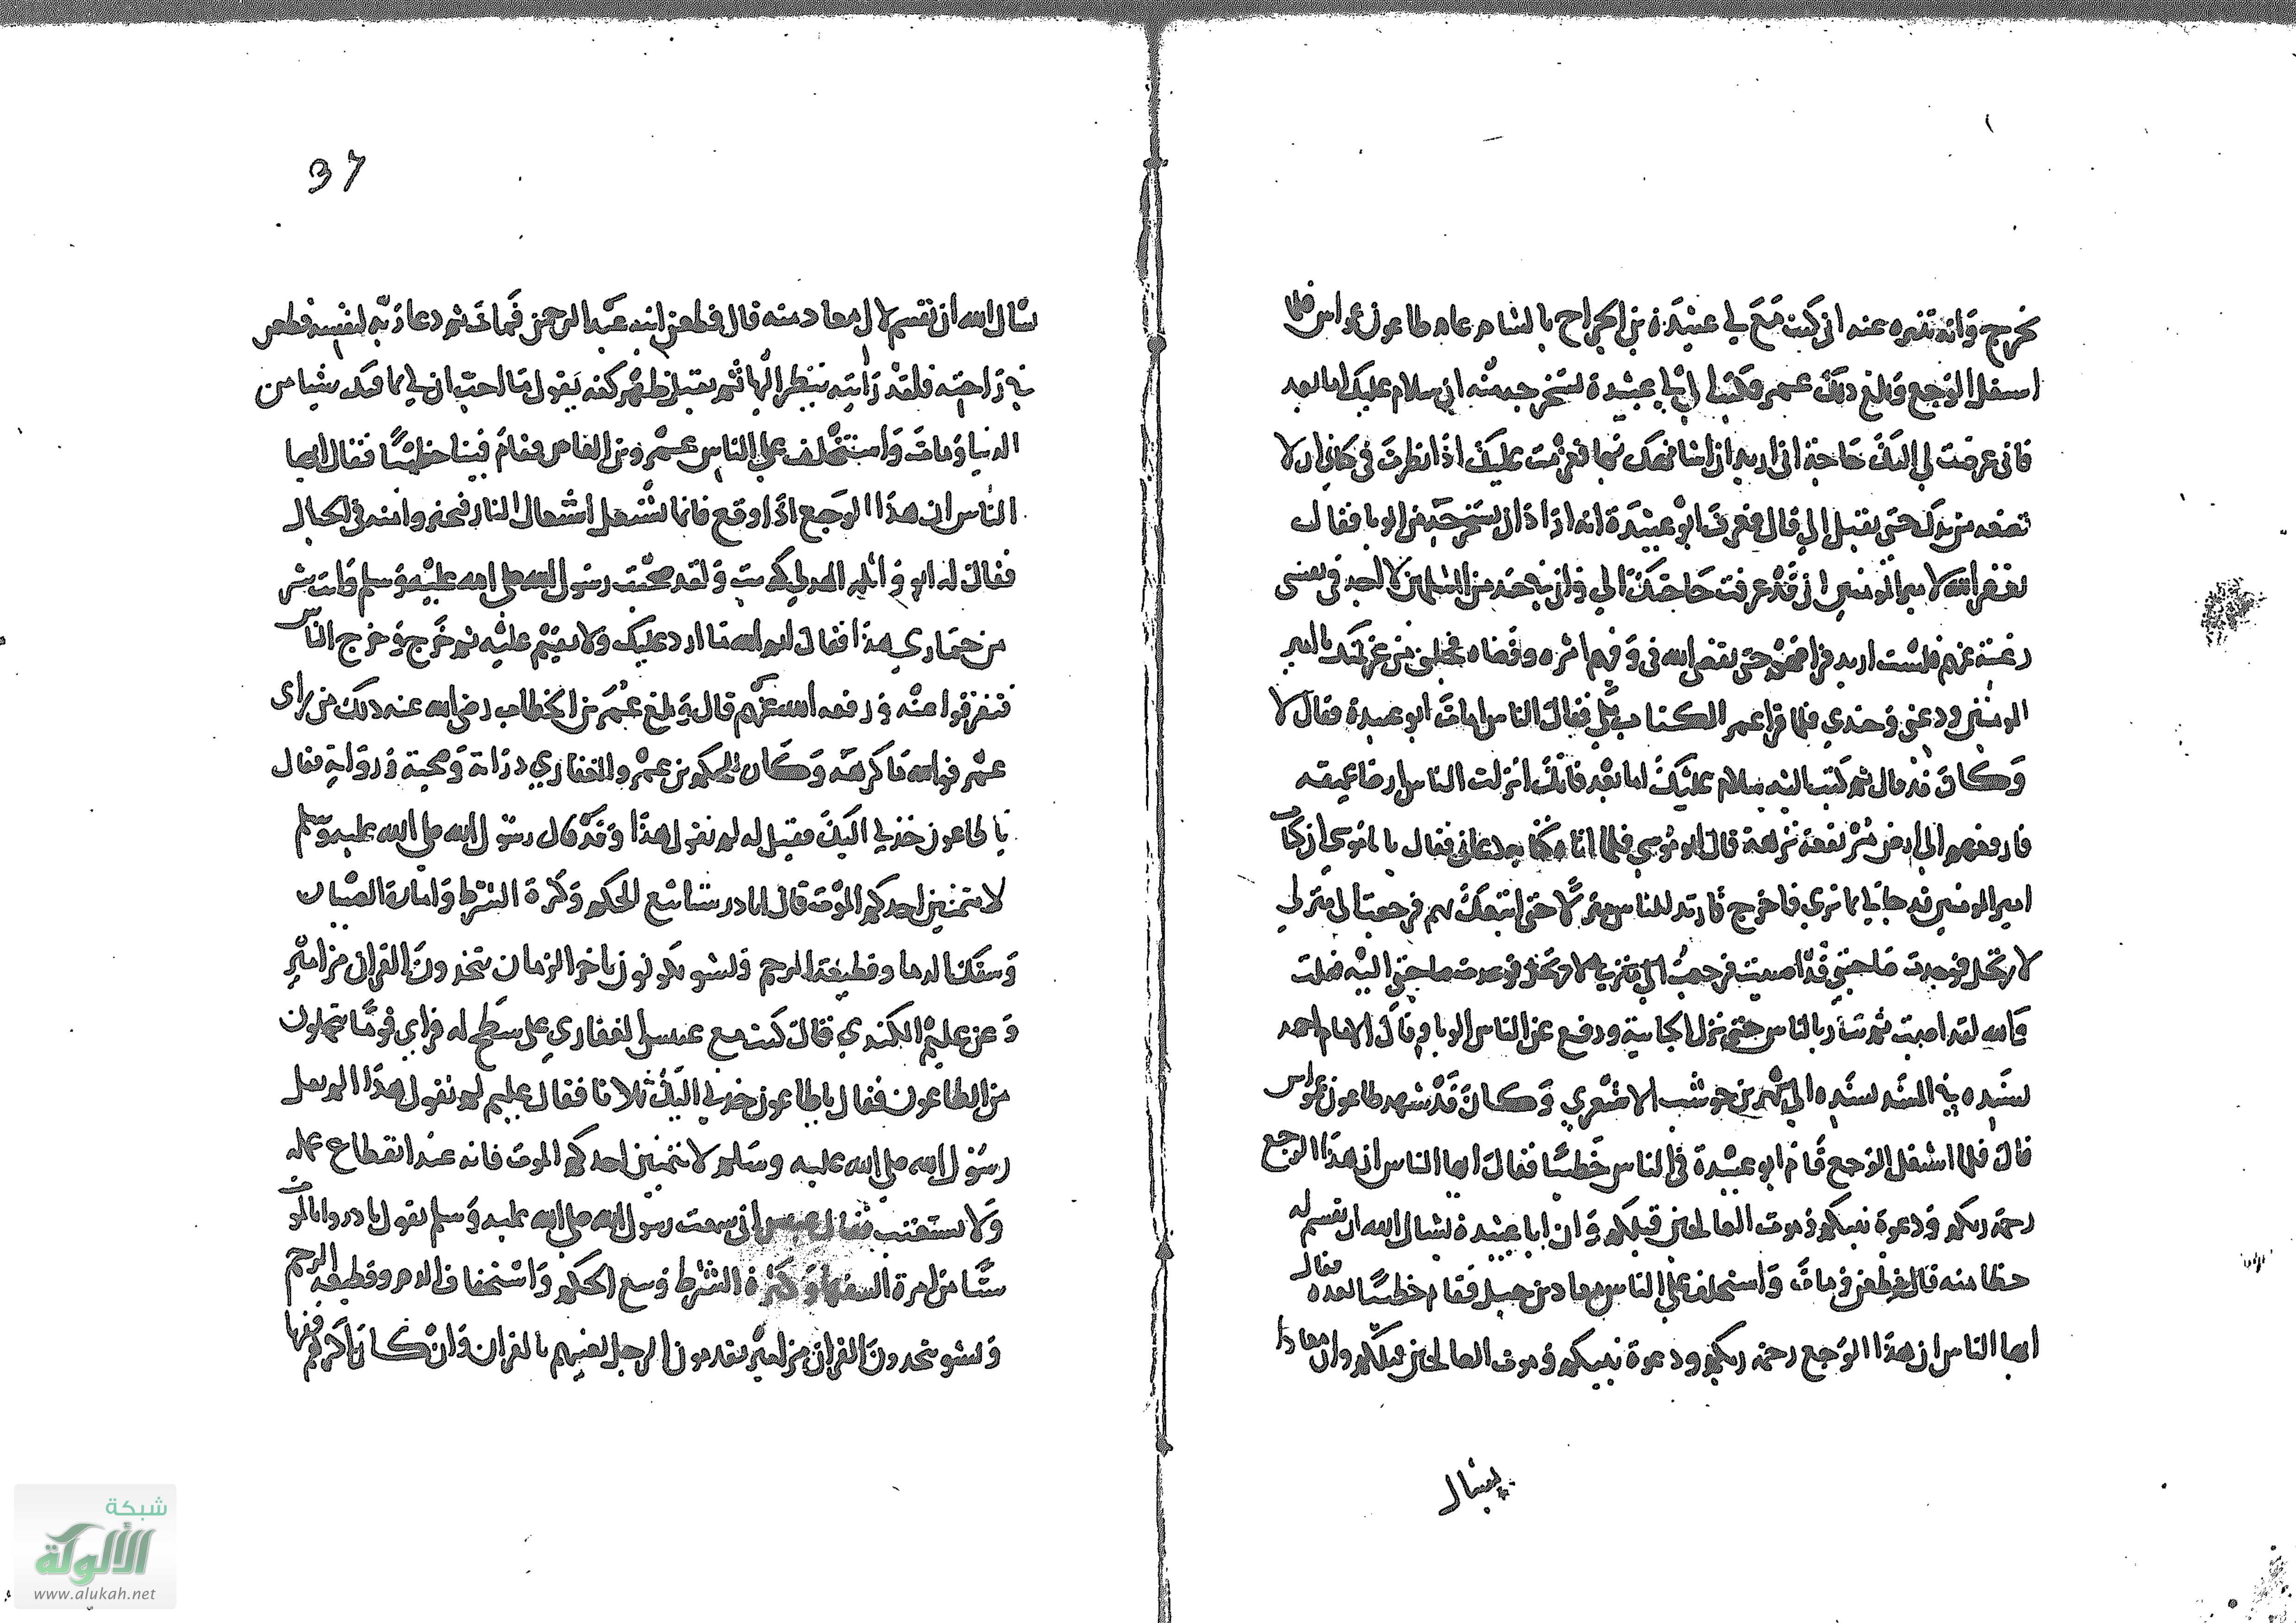 نخرج وانه تنزه عنه اني كنت مع ابي عبيدة بن الجراح بالشام عام طاعون عمواس فلما
اشتعل الوجع وبلغ ذلك عمر وكتب الى ابي عبيدة ليستخرجه منه ان سلام عليك اما بعد
فانى عرضت لي اليك حاجة اني اريد ان اشافهك بها فعزمت عليك اذا نظرت في كتابي ان لا
تضعه من يدك حتى تقبل الي قال فعرف ابو عبيدة انه انما اراد ان يستخرجه من الوبا فقال
يغفر الله لامير المومنين اني قد عرفت حاجتك الي واني في جند من المسلمين لا اجد في نفسي
رغبة عنهم فلست اريد فراقهم حتى يقضي الله في وفيهم امره وقضاه فحللني من عزمتك يا امير
المومنين ودعني وجندي فلما قرا عمر الكتاب بكى فقال الناس امات ابو عبيدة فقال لا
وكان قد قال ثم كتب اليه سلام عليك اما بعد فانك انزلت الناس ارضا عميقه
فارفعهم الى ارض مرتفعة نزهة قال ابو موسى فلما اتاه كتابه دعاني فقال يا موسى ان كتاب
امير المومنين قد جاني بما ترى فاخرج فارتد للناس منزلا حتى اتبعك بهم فرجعت الى منزلي
لارتحل فوجدت صاحبتي قد اصيبت فرجعت
والله لقد اصبت ثم سار بالناس حتى نزل الجابية ورفع عن الناس الوبا وقال الامام احمد
بسنده في المسند بسنده الى شهر بن حوشب الاشعري وكان قد شهد طاعون عمواس
قال فلما اشتعل الوجع قام ابو عبيدة في الناس خطيبا فقال ايها الناس ان هذا الوجع
رحمة ربكم ودعوة نبيكم وموت الصالحين قبلكم وان ابا عبيدة يسال الله ان يقسم له
حظا منه قال فطعن فمات واستخلف على الناس معاذ بن جبل فقام خطيبا بعده فقال
ايها الناس ان هذا الوجع رحمة ربكم ودعوة نبيكم وموت الصالحين قبلكم وان معاذا
يسال
37
يسال الله ان يقسم لال معاد منه قال فطعن ابنه عبد الرحمن فمات ثم دعا ربه لنفسه فطعن
في راحته فلقد رايته ينظر اليها ثم يقبل ظهر كفه يقول ما احب ان لي بما فيك شيا من
الدنيا ومات واستخلف على الناس عمرو بن العاص فقام فينا خطيبا فقال ايها
الناس ان هذا الوجع اذا وقع فانما يشتعل اشتعال النار فتحرزوا منه في الجبال
فقال له ابو واثلة الهدلي كذبت ولقد صحبت رسول الله صلى الله عليه وسلم وانت شر
من حماري هذا فقال ابو الله ما ارد عليك ولا نقيم عليه ثم خرج وخرج الناس
فتفرقوا عنه ورفعه الله عنهم قال وبلغ عمر بن الخطاب رضي الله عنه ذلك من راي
عمر فوالله ما كرهه وكان الحكم بن عمرو الغفاري دراة وصحبة ورواية فقال
يا طاعون خذني اليك فقيل له لم تقول هذا وقد قال رسول الله صلى الله عليه وسلم
لا يتمنين احدكم الموت قال ابادر ستا بيع الحكم وكثرة الشرط وامارة الصبيان
وسفك الدما وقطيعة الرحم ونشو يكونون باخر الزمان يتخذون القران مزامير
وعن عليم الكندي قال كنت مع عبس الغفاري على سطح له فراي قوما يتحملون
من الطاعون فقال يا طاعون خذني اليك ثلاثا فقال عليم لم تقول هذا الم يقل
رسول الله صلى الله عليه وسلم لا يتمنين احدكم الموت فانه عند انقطاع عمله
ولا يستعتب فقال عبس اني سمعت رسول الله صلى الله عليه وسلم يقول بادروا بالموت
ستا من امرة السفها وكثرة الشرط وبيع الحكم واستخفافا بالدم وقطيعة الرحم
ونشو يتخذون القران مزامير يقدمون الرجل ليغنيهم بالقران وان كان اقلهم فقها
شبكة
الألوكة
www.alukah.net